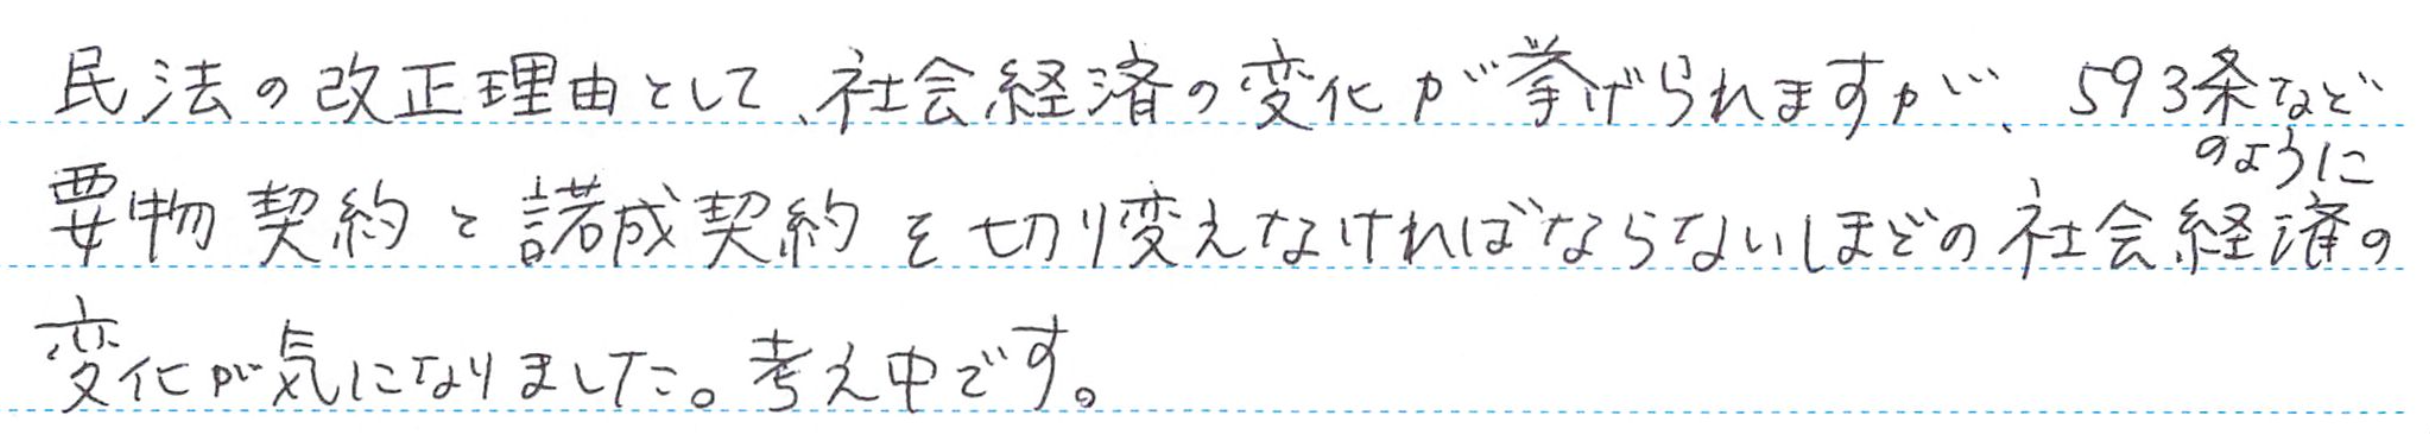 民法の改正理由として、社会経済の変化が挙げられますが、593条など
のように
要物契約と諾成契約を切り変えなければならないほどの社会経済の
変化が気になりました。考え中です。